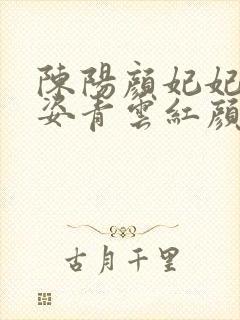 陳陽顏妃妃
姿青雲紅顏
古月千里